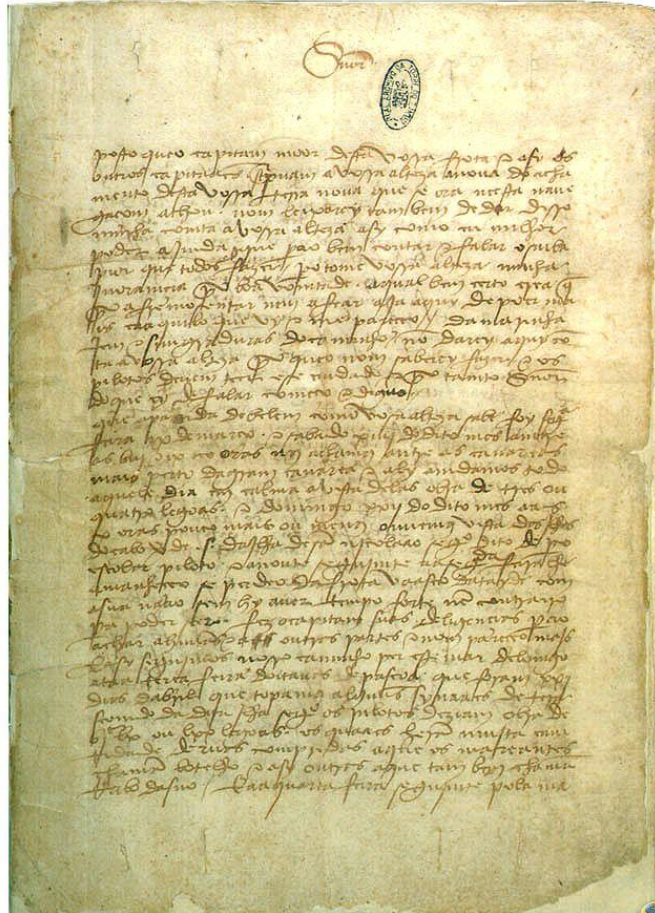 Snõr
posto queo capitam moor desta vossa frota e asy os
outros capitaães screpuam a vossa alteza anoua do acha
mento desta vossa terra noua que se ora neesta naue
gaçom achou. nom leixarey tambem de dar disso
minha comta avossa alteza asy como eu milhor
poder ajmda que perao bem contar e falar o saiba
pior que todos fazer. pero tome vossa alteza minha
jnoramçia por boa vomtade. aqual bem çerto crea q̃
por afremosentar nem afear aja aquy de poer ma
is caaquilo que vy e me pareçeo. da marinha
jem e simgraduras do caminho nõ darey aquy cõ
ta a vossa alteza por queo nom saberey fazer e os
pilotos deuem teer ese cuidado e por tamto Snõr
do que ey de falar começo e diguo
que apartida de belem como vosa alteza sabe foy segª
feira ix de março. e sabado xiiij do dito mes amtre
as biij e ix oras nos achamos antre as canareas
mais perto da gram canarea e aly amdamos todo
aquele dia em calma avista delas obra de tres ou
quatro legoas. e domingo xxij do dito mes aas
x oras pouco mais ou menos ouuemos vista das jlhas
do cabo verde .s. da jlha de sã njcolaao segº dito de pº
escolar piloto. e anoute segujmte aa segª feira lhe
amanheçeo se perdeo da frota vaasco datayde com
asua naao sem hy auer tempo forte nẽ contrairo
pera poder seer. fez ocapitam suas deligençias pera o
achar ahuũas e a outras partes e nom pareçeo mais
E asy segujmos nosso caminho per este mar delomgo
ataa terça feira doitauas de pascoa que foram xxj
dias dabril que topamos alguũs synaaes de tera
seemdo da dita jlha segº os pilotos deziam obra de
bjᶜ lx ou lxx legoas. os quaaes herã mujta cam
tidade deruas compridas aque os mareantes
chamã botelho e asy outras aque tambem chamã
Rabo dasno / E aa quarta feira segujmte pola ma